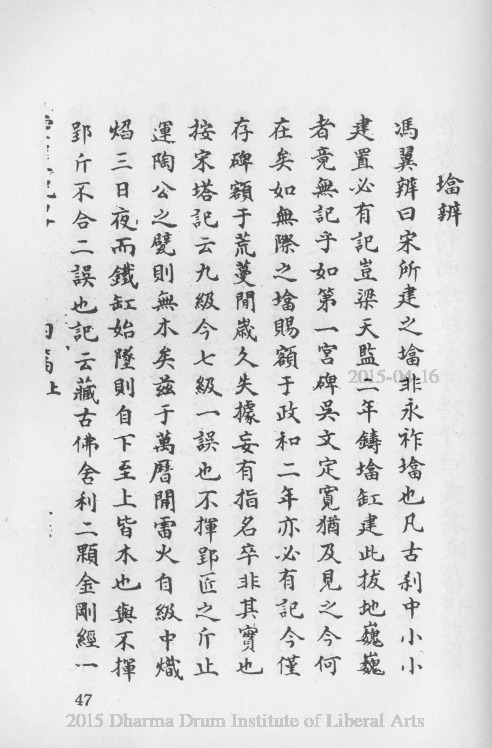 墖辨
馮翼辨曰宋所建之墖非永祚墖也凡古刹中小小
建置必有記豈梁天監二年鑄墖缸建此拔地巍巍
者竟無記乎如第一宮碑吳文定寬猶及見之今何
在矣如無際之墖賜額于政和二年亦必有記今僅
存碑額于荒蔓間歲久失據妄有指名卒非其實也
按宋塔記云九級今七級一誤也不揮郢匠之斤止
運陶公之甓則無木矣茲于萬曆間雷火自級中熾
焰三日夜而鐵缸始墮則自下至上皆木也與不揮
郢斤不合二誤也記云藏古佛舍利二顆金剛經一
上
47
2015-04-16
2015 Dharma Drum Institute of Liberal Arts